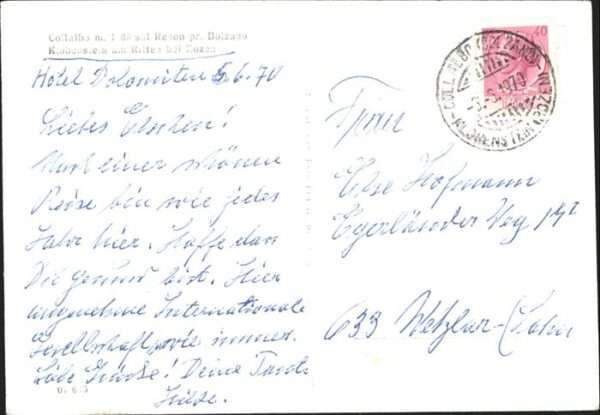 Collalbo m. 1 sul Renon pr. Bolzano
Klobenstein am Ritten bei Bozen
Hotel Dolomiten 5.6.70
Liebes Elschen!
Nach einer schönen
Reise bin wie jedes
Jahr hier. Hoffe dan
Du gesund bist. Hier
angenehme Internationale
Gesellschaft wie immer.
Liebe Grüsse! Deine Tante
Hilde.
40
COLLALBO (BOLZANO)
1970
KLOBENSTEIN (BOZEN)
Frau
Else Hofmann
Egerländer Weg 14
633 Wetzlar-Lahn